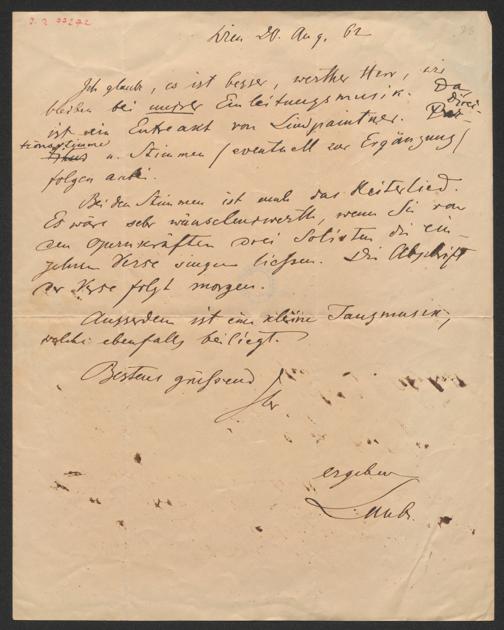 Wien 20. Aug. 62
Ich glaube, es ist besser, werther Herr, wir
bleiben bei unsrer Einleitungsmusik. Da
ist ein Entreakt von Lindpaintner. Direc-
tionsstimme u. Stimmen (eventuell zur Ergänzung)
folgen anbei.
Bei den Stimmen ist auch das Reiterlied.
Es wäre sehr wünschenswerth, wenn Sie von
den Opernkräften drei Solisten die ein-
zelnen Verse singen liessen. Die Abschrift
der Verse folgt morgen.
Ausserdem ist eine kleine Tanzmusik,
welche ebenfalls beiliegt.
Bestens grüssend
Ihr
ergeben
Laube.